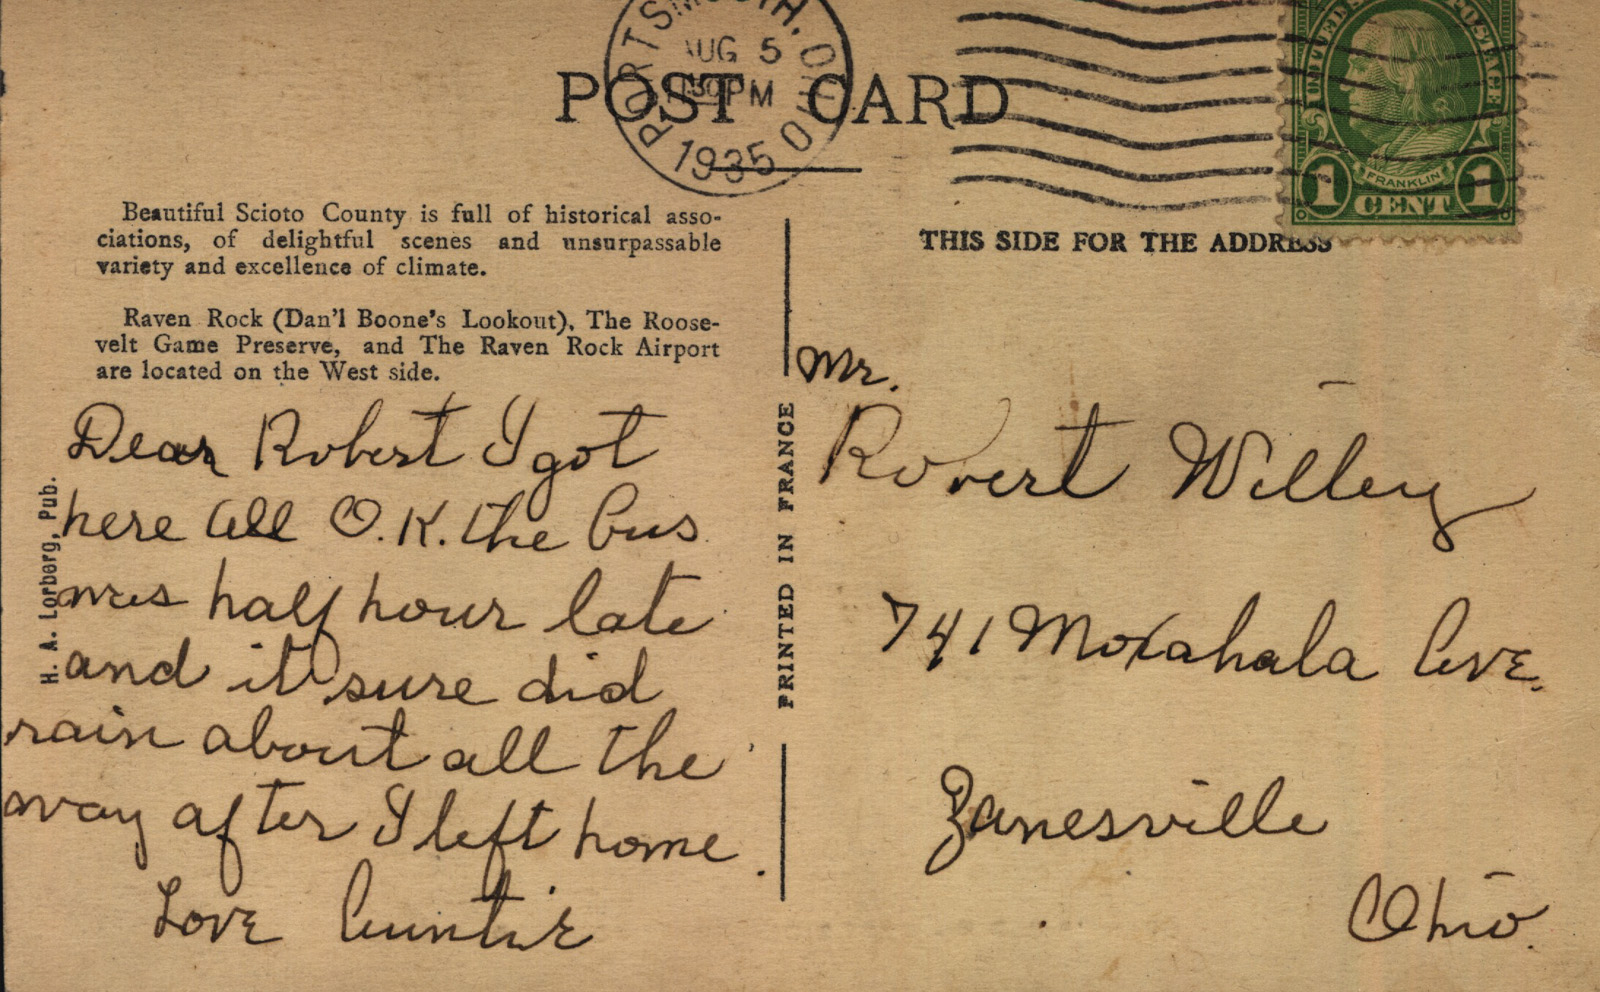 PORTSMOUTH, OHIO
AUG 5
30 PM
1935
POST CARD
UNITED STATES POSTAGE
FRANKLIN
1 CENT 1
Beautiful Scioto County is full of historical asso-
ciations, of delightful scenes and unsurpassable
variety and excellence of climate.
Raven Rock (Dan'l Boone's Lookout), The Roose-
velt Game Preserve, and The Raven Rock Airport
are located on the West side.
H. A. Lorberg, Pub.
Dear Robert I got
here all O.K. the bus
was half hour late
and it sure did
rain about all the
way after I left home.
Love Auntie
PRINTED IN FRANCE
THIS SIDE FOR THE ADDRESS
Mr.
Robert Willey
741 Moxahala Ave.
Zanesville
Ohio.